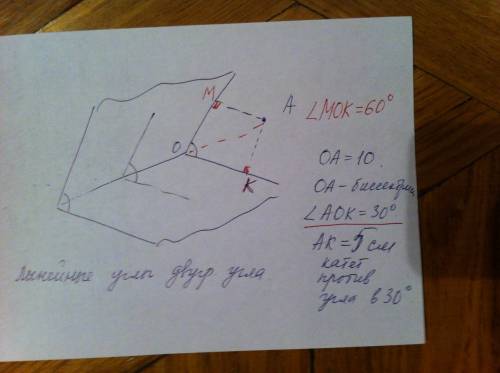 M
A
O
K
∠MOK=60°
OA=10.
OA-биссектриса
∠AOK=30°
AK=5 см
катет
против
угла в 30°
Линейные углы двугр угла